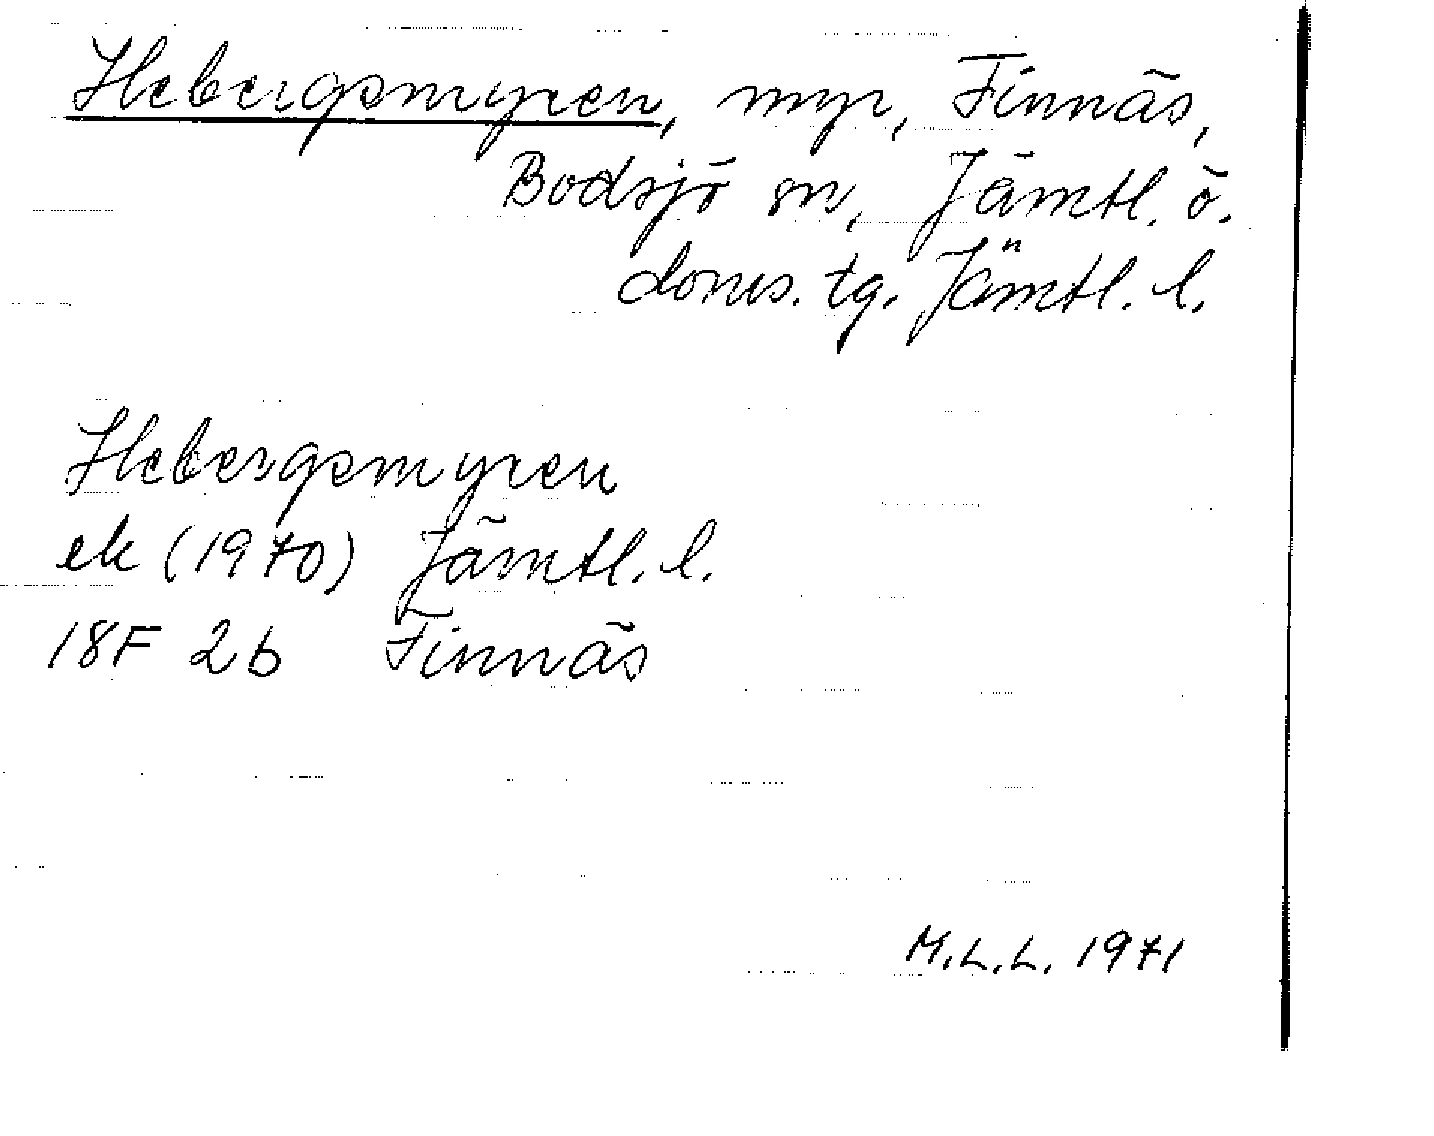 Hebergsmyren, myr, Finnäs,
Bodsjö sn, Jämtl. ö.
doms. tg. Jämtl. l.
Hebergsmyren
ek (1970) Jämtl. l.
18F 2b Finnäs
M.L.L. 1971